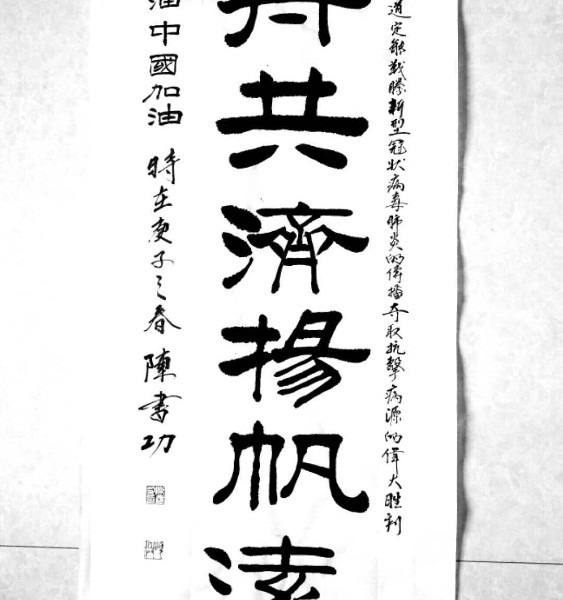 道定能戰勝新型冠狀病毒肺炎的傳播夺取抗擊病源的偉大胜利
共濟揚帆
油中國加油 時在庚子之春 陳書功